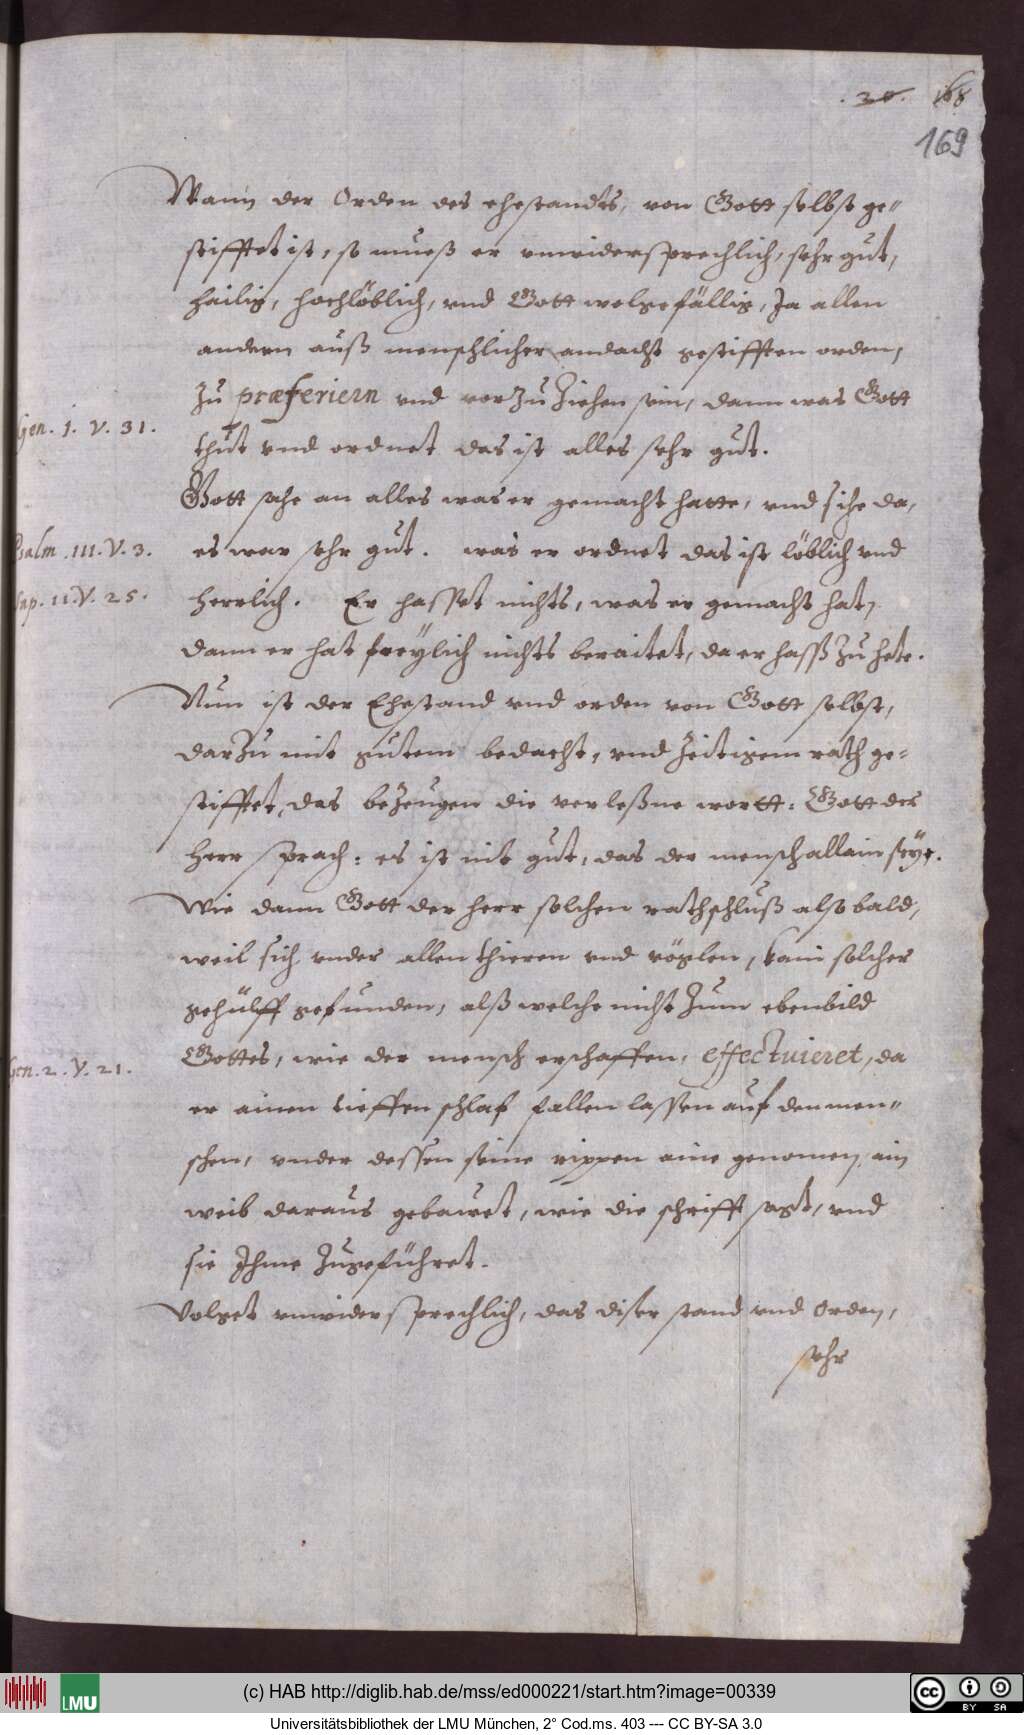 . 30. 168
169
Wann der Orden des ehestandts, von Gott selbst ge-
stifftet ist, so mueß er unwidersprechlich, sehr gut,
hailig, hochlöblich, vnd Gott wolgefällig, Ja allen
andern auß menschlicher andacht gestifften orden,
zu præferiern vnd vorzuziehen sein, dann was Gott
Gen. 1. V. 31.
thut vnd ordnet das ist alles sehr gut.
Gott sahe an alles was er gemacht hatte, vnd sihe da,
Psalm. 111. V. 3.
es war sehr gut. was er ordnet das ist löblich vnd
Sap. 11. V. 25.
herrlich. Er hasset nichts, was er gemacht hat,
dann er hat freÿlich nichts beraitet, da er hasß zu hete.
Nun ist der Ehestand vnd orden von Gott selbst,
darzu mit gutem bedacht, vnd zeitigem rath ge-
stifftet, das bezeugen die verleßne wortt: Gott der
Herr sprach: es ist nit gut, das der mensch allain seÿe.
Wie dann Gott der herr solchen rathschluß also bald,
weil sich vnder allen thieren vnd vöglen, kain solcher
gehülff gefunden, alß welche nicht zum ebenbild
Gottes, wie der mensch erschaffen, effectuieret, da
Gen. 2. V. 21.
er ainen tieffen schlaf fallen lassen auf den men-
schen, vnder dessen seine rippen aine genomen, ain
weib daraus gebawet, wie die schrifft sagt, vnd
sie Ihme zugeführet.
Volget unwidersprechlich, das diser stand vnd Orden,
sehr
(c) HAB http://diglib.hab.de/mss/ed000221/start.htm?image=00339
LMU
cc BY SA
Universitätsbibliothek der LMU München, 2° Cod.ms. 403 --- CC BY-SA 3.0